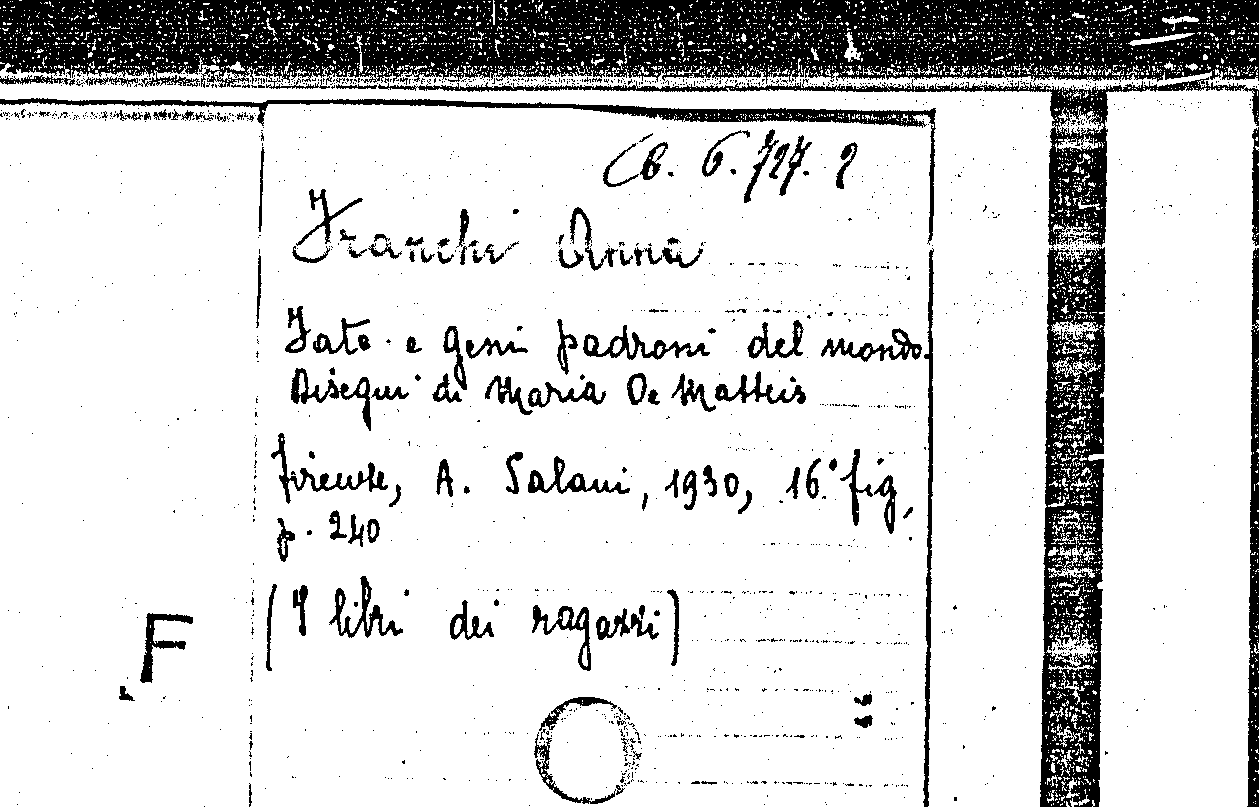 Cb. 6.727.2
Franchi Anna
Fate e geni padroni del mondo.
Disegni di Maria De Matteis
Firenze, A. Salani, 1930, 16° fig,
p. 240
(I libri dei ragazzi)
F